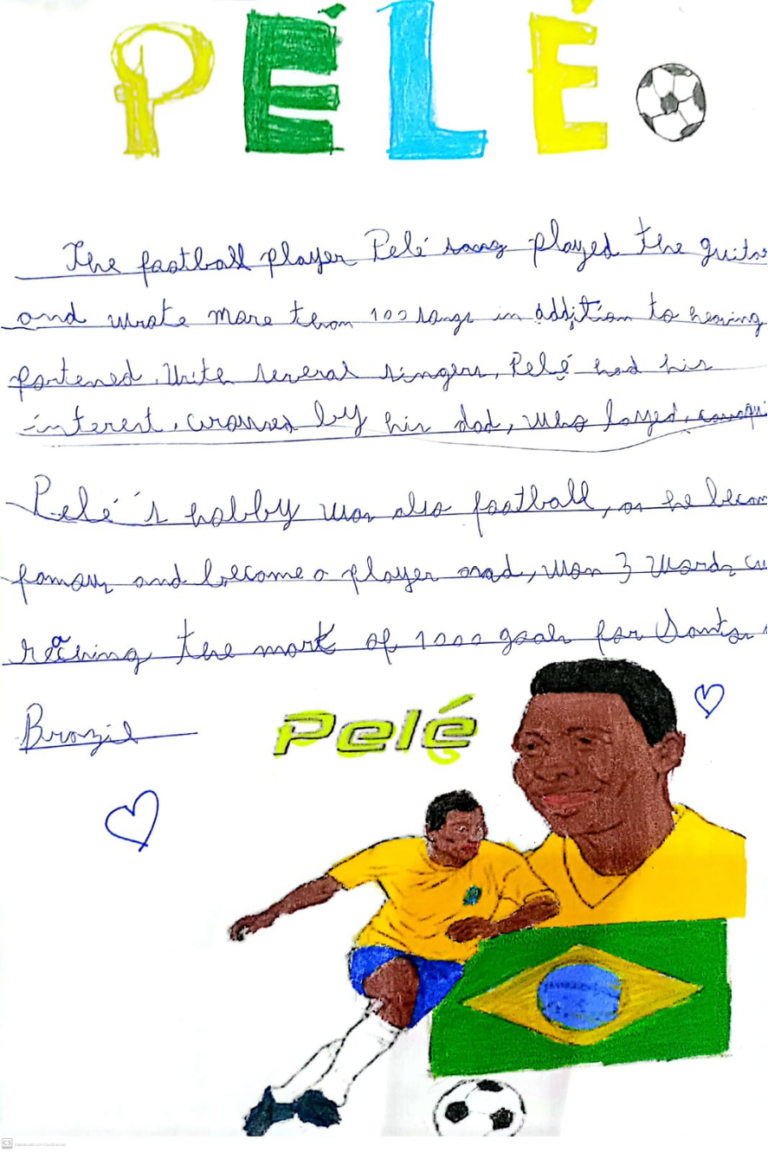 PÉLÉ
The football player Pelé sang played the guitar
and wrote more than 100 songs in addition to having
partened. With several singers, Pelé had his
interest, aroused by his dad, who loved,
Pelé's hobby was also football, as he becam
famous and become a player and, won 3 Words cu
reaching the mark of 1000 goals for Santos,
Brazil
Pelé